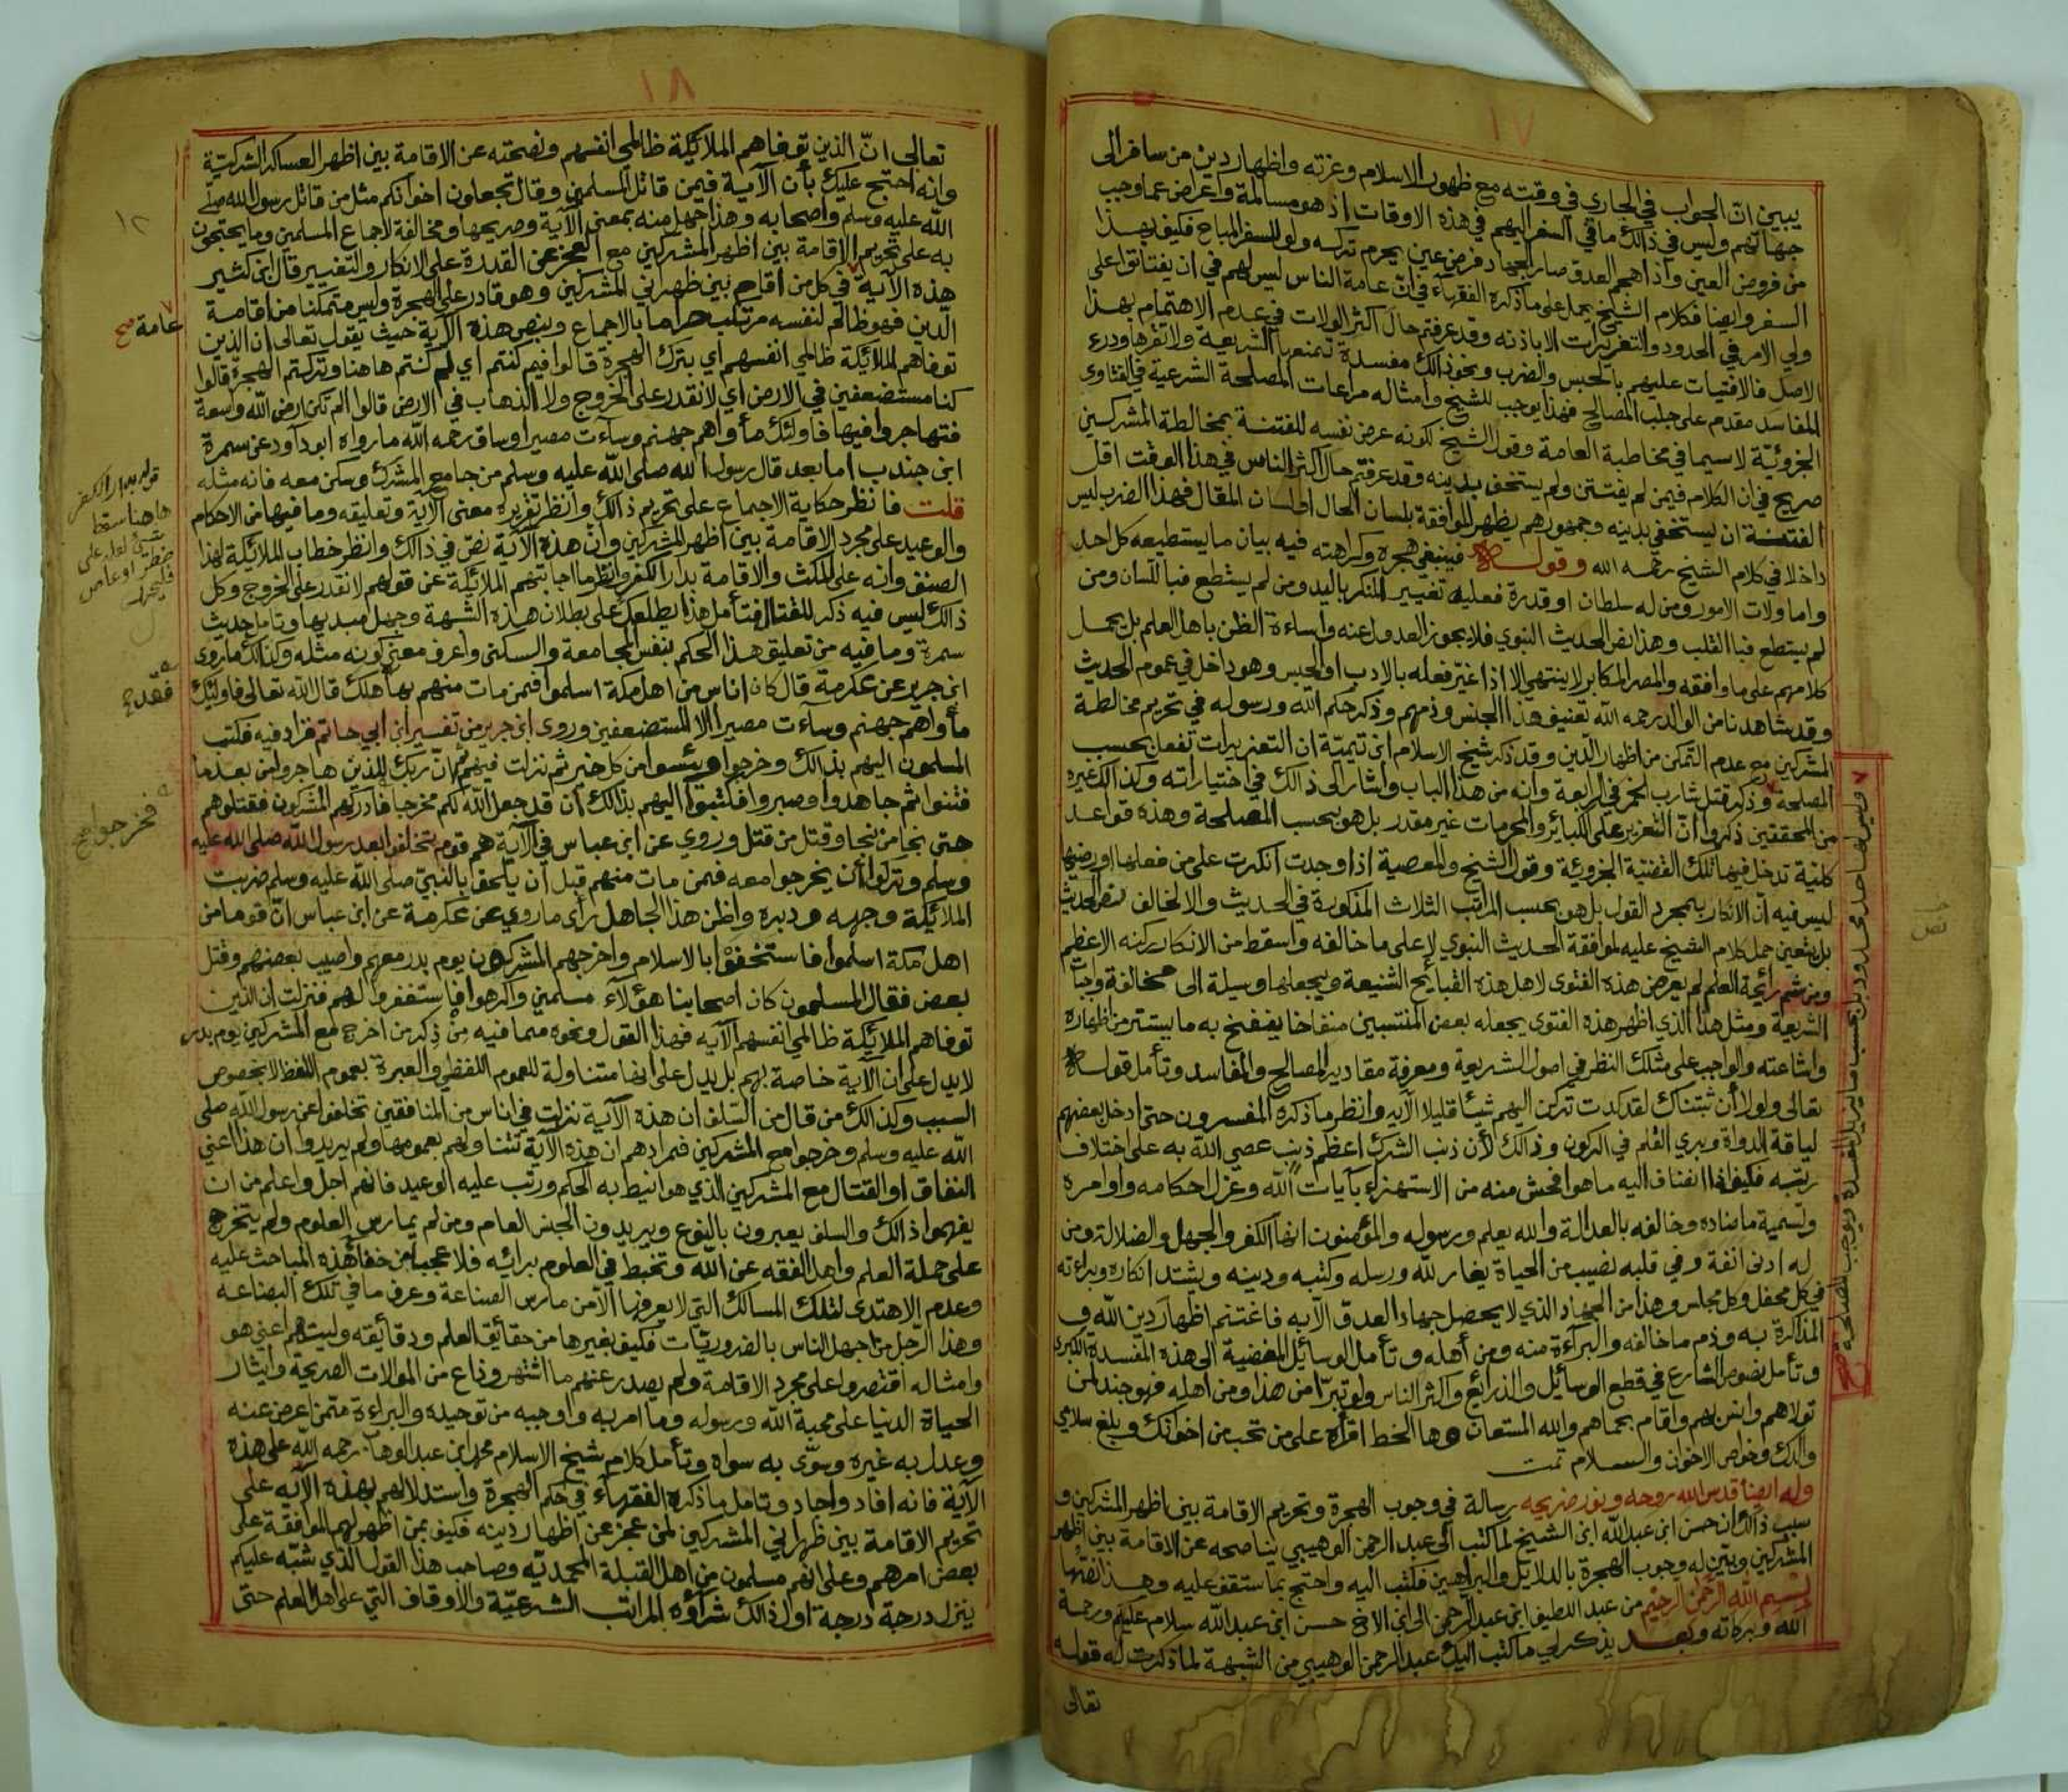 ١٧
يبين ان الجواب في الجاري في وقته مع ظهور الاسلام وعزته واظهار دين من سافر الى
جهاتهم وليس في ذالك ما في السفر اليهم في هذه الاوقات اذ هو مسالمة واعراض عما وجب
من فروض العين واذا هجم العدو صار الجهاد فرض عين يحرم تركه ولو للسفر المباح فكيف بهذا
السفر وايضا فكلام الشيخ يحمل على ما ذكره الفقهاء في ان عامة الناس ليس لهم في ان يفتاتوا على
ولي الامر في الحدود والتعزيرات الا باذنه وقد عرفتم حال اكثر الولات في عدم الاهتمام بهذا
الاصل فالافتيات عليهم بالحبس والضرب ونحو ذالك مفسدة تمنعها الشريعة ولا تقرها ودرء
المفاسد مقدم على جلب المصالح فهذا يوجب للشيخ وامثاله مراعات المصلحة الشرعية في الفتاوى
الجزوئية لا سيما في مخاطبة العامة وقول الشيخ لكونه عرض نفسه للفتنة بمخالطة المشركين
صريح في ان الكلام فيمن لم يفتتن ولم يستخف بدينه وقد عرفتم حال اكثر الناس في هذا الوقت اقل
الفتنة ان يستخفي بدينه وجمهورهم يظهر الموافقة بلسان الحال او لسان المقال فهذا الضرب ليس
داخلا في كلام الشيخ رحمه الله وقوله فينبغي هجره وكراهته فيه بيان ما يستطيعه كل احد
واما ولات الامور ومن له سلطان او قدرة فعليه تغيير المنكر باليد ومن لم يستطع فبا للسان ومن
لم يستطع فبا القلب وهذا نص الحديث النبوي فلا يجوز العدول عنه واساءة الظن باهل العلم بل يحمل
كلامهم على ما وافقه والمصر المكابر لا ينتهي الا اذا غير فعله بالادب او الحبس وهو داخل في عموم الحديث
وقد شاهدنا من الوالد رحمه الله تعنيف هذا الجنس وذمهم وذكر حكم الله ورسوله في تحريم مخالطة
المشركين مع عدم التمكن من اظهار الدين وقد ذكر شيخ الاسلام ابن تيمية ان التعزيرات تفعل بحسب
المصلحة وذكر قتل شارب الخمر في الرابعة وانه من هذا الباب واشار الى ذالك في اختياراته وكذالك غيره
من المحققين ذكروا ان التعزير على الكبائر والمحرمات غير مقدر بل هو بحسب المصلحة وهذه قواعد
كلية تدخل فيها تلك القضية الجزوئية وقول الشيخ والمعصية اذا وجدت انكرت على من فعلها او رضيها
ليس فيه ان الانكار بمجرد القول بل هو بحسب المراتب الثلاث المذكورة في الحديث والا لخالف نص الحديث
بل يتعين حمل كلام الشيخ عليه لموافقة الحديث النبوي لا على ما خالفه واسقط من الانكار ركنه الاعظم
ومن شم رائحة العلم لم يعرض هذه الفتوى لاهل هذه القبائح الشنيعة ويجعلها وسيلة الى مخالفة واجبات
الشريعة ومثل هذا الذي اظهر هذه الفتوى يجعله بعض المنتسبين منفاخا ينفخ به ما يستتر من اظهاره
واشاعته والواجب على مثلك النظر في اصول الشريعة ومعرفة مقادير المصالح والمفاسد وتأمل قوله
تعالى ولولا أن ثبتناك لقد كدت تركن اليهم شيئا قليلا الآيه وانظر ما ذكره المفسرون حتى ادخل بعضهم
لياقة الدواة وبري القلم في الركون وذالك لأن ذنب الشرك اعظم ذنب عصي الله به على اختلاف
رتبه فكيف اذا انضاف اليه ما هو افحش منه من الاستهزاء بآيات الله وعزل احكامه واوامره
وتسمية ما ضاده وخالفه بالعدالة والله يعلم ورسوله والمؤمنون انها الكفر والجهل والضلالة ومن
له ادنى انفة وفي قلبه نصيب من الحياة يغار لله ورسله وكتبه ودينه ويشتد انكاره وبراءته
في كل محفل وكل مجلس وهذا من الجهاد الذي لا يحصل جهاد العدو الا به فاغتنم اظهار دين الله و
المذاكرة به وذم ما خالفه والبراءة منه ومن أهله وتأمل الوسائل المفضية الى هذه المفسدة الكبرى
وتأمل نصوص الشارع في قطع الوسائل والذرائع واكثر الناس ولو تبرأ من هذا ومن اهله فهو جند لمن
تولاهم وانس بهم واقام بحماهم والله المستعان وها الخط اقرأه على من تحب من اخوانك وبلغ سلامي
والدك وخواص الاخوان والسلام تمت
وله ايضا قدس الله روحه ونور ضريحه رسالة في وجوب الهجرة وتحريم الاقامة بين اظهر المشركين و
سبب ذالك ان حسن ابن عبدالله ابن الشيخ لما كتب الى عبد الرحمن الوهيبي يناصحه عن الاقامة بين اظهر
المشركين ويبين له وجوب الهجرة بالدلايل والبراهين فكتب اليه واحتج بما ستقف عليه وهذا نصها
بسم الله الرحمن الرحيم من عبد اللطيف ابن عبد الرحمن الى ابن الاخ حسن ابن عبدالله سلام عليكم ورحمة
الله وبركاته وبعد يذكر لي ما كتب اليك عبد الرحمن الوهيبي من الشبهة لما ذكرت له قوله
تعالى
وليس لها حد محدود بل بحسب ما يزيل المفسدة ويوجب المصلحة صح
نص
١٨
تعالى انّ الذين توفاهم الملائكة ظالمي انفسهم ونصحته عن الاقامة بين اظهر العساكر الشركيّة
وانه احتج عليك بأن الآية فيمن قاتل المسلمين وقال تجعلون اخوانكم مثل من قاتل رسول الله صلّى
الله عليه وسلم واصحابه وهذا جهل منه بمعنى الآية وصريحها ومخالفة لاجماع المسلمين وما يحتجون
به على تحريم الاقامة بين اظهر المشركين مع العجز عن القدرة على الانكار والتغيير قال ابن كثير
هذه الآية في كل من اقام بين ظهراني المشركين وهو قادر على الهجرة وليس متمكنا من اقامة
الدين فهو ظالم لنفسه مرتكب حراما بالاجماع وبنص هذه الآية حيث يقول تعالى ان الذين
توفاهم الملائكة ظالمي انفسهم أي بترك الهجرة قالوا فيم كنتم أي لم كنتم هاهنا وتركتم الهجرة قالوا
كنا مستضعفين في الارض أي لا نقدر على الخروج ولا الذهاب في الارض قالوا الم تكن ارض الله واسعة
فتهاجروا فيها فاولئك مأواهم جهنم وسآءت مصيرا وساق رحمه الله ما رواه ابو داود عن سمرة
ابن جندب اما بعد قال رسول الله صلى الله عليه وسلم من جامع المشرك وسكن معه فانه مثله
قلت فانظر حكاية الاجماع على تحريم ذالك وانظر تقريره معنى الآية وتعليقه وما فيها من الاحكام
والوعيد على مجرد الاقامة بين اظهر المشركين وان هذه الآية نصّ في ذالك وانظر خطاب الملائكة لهذا
الصنف وانه على المكث والاقامة بدار الكفر وانظر ما اجابتهم الملائكة عن قولهم لا نقدر على الخروج وكل
ذالك ليس فيه ذكر للقتال فتأمل هذا يطلعك على بطلان هذه الشبهة وجهل مبديها وتامل حديث
سمرة وما فيه من تعليق هذا الحكم بنفس المجامعة والسكنى واعرف معنى كونه مثله وكذالك ما روى
ابن جرير عن عكرمة قال كان اناس من اهل مكة اسلموا فمن مات منهم بها هلك قال الله تعالى فاولئك
مأواهم جهنم وسآءت مصيرا الا المستضعفين وروى ابن جرير من تفسير ابن ابي حاتم فزاد فيه فكتب
المسلمون اليهم بذالك وخرجوا ويئسوا من كل خير ثم نزلت فيهم ثم انّ ربك للذين هاجروا من بعد ما
فتنوا ثم جاهدوا وصبروا فكتبوا اليهم بذالك أن قد جعل الله لكم مخرجا فادركهم المشركون فقتلوهم
حتى نجا من نجا وقتل من قتل وروي عن ابن عباس في الآية هم قوم تخلفوا بعد رسول الله صلى الله عليه
وسلم وتركوا أن يخرجوا معه فمن مات منهم قبل أن يلحق بالنبي صلى الله عليه وسلم ضربت
الملائكة وجهه ودبره واظن هذا الجاهل رأى ما روي عن عكرمة عن ابن عباس انّ قوما من
اهل مكة اسلموا فاستخفوا بالاسلام واخرجهم المشركون يوم بدر معهم واصيب بعضهم وقتل
بعض فقال المسلمون كان اصحابنا هؤلآء مسلمين واكرهوا فاستغفروا لهم فنزلت ان الذين
توفاهم الملائكة ظالمي انفسهم الآيه فهذا القول ونحوه مما فيه من ذكر من اخرج مع المشركين يوم بدر
لا يدل على ان الآية خاصة بهم بل يدل على انها متناولة للعموم اللفظي والعبرة بعموم اللفظ لا بخصوص
السبب وكذالك من قال من السلف ان هذه الآية نزلت في اناس من المنافقين تخلفوا عن رسول الله صلى
الله عليه وسلم وخرجوا مع المشركين فمرادهم ان هذه الآية تتناولهم بعمومها ولم يريدوا ان هذا اعني
النفاق او القتال مع المشركين الذي هو انيط به الحكم ورتب عليه الوعيد فانهم اجل واعلم من ان
يفهموا ذالك والسلف يعبرون بالنوع ويريدون الجنس العام ومن لم يمارس العلوم ولم يتخرج
على حملة العلم واهل الفقه عن الله وتخبط في العلوم برائه فلا عجب من خفاء هذه المباحث عليه
وعدم الاهتدى لتلك المسالك التي لا يعرفها الا من مارس الصناعة وعرف ما في تلك البضاعه
وهذا الرّجل من اجهل الناس بالضروريّات فكيف بغيرها من حقائق العلم ودقائقه وليت هم اعني هو
وامثاله اقتصروا على مجرد الاقامة ولم يصدر عنهم ما اشتهر وذاع من الموالات الصريحة وايثار
الحياة الدنيا على محبة الله ورسوله وما امر به واوجبه من توحيده والبراءة ممن اعرض عنه
وعدل به غيره وسوّى به سواه وتأمل كلام شيخ الاسلام محمد ابن عبد الوهاب رحمه الله على هذه
الآية فانه افاد واجاد وتامل ما ذكره الفقهاء في حكم الهجرة واستدلالهم بهذه الآيه على
تحريم الاقامة بين ظهراني المشركين لمن عجز عن اظهار دينه فكيف بمن اظهر لهم الموافقة على
بعض امرهم وعلى انهم مسلمون من اهل القبلة المحمديّه وصاحب هذا القول الذي شبّه عليكم
ينزل درجة درجة اول ذالك شرآؤه المراتب الشرعيّة والاوقاف التي على اهل العلم حتى
١٢
عامة صح
هاهنا سقط
فقد صح
فخرجوا صح